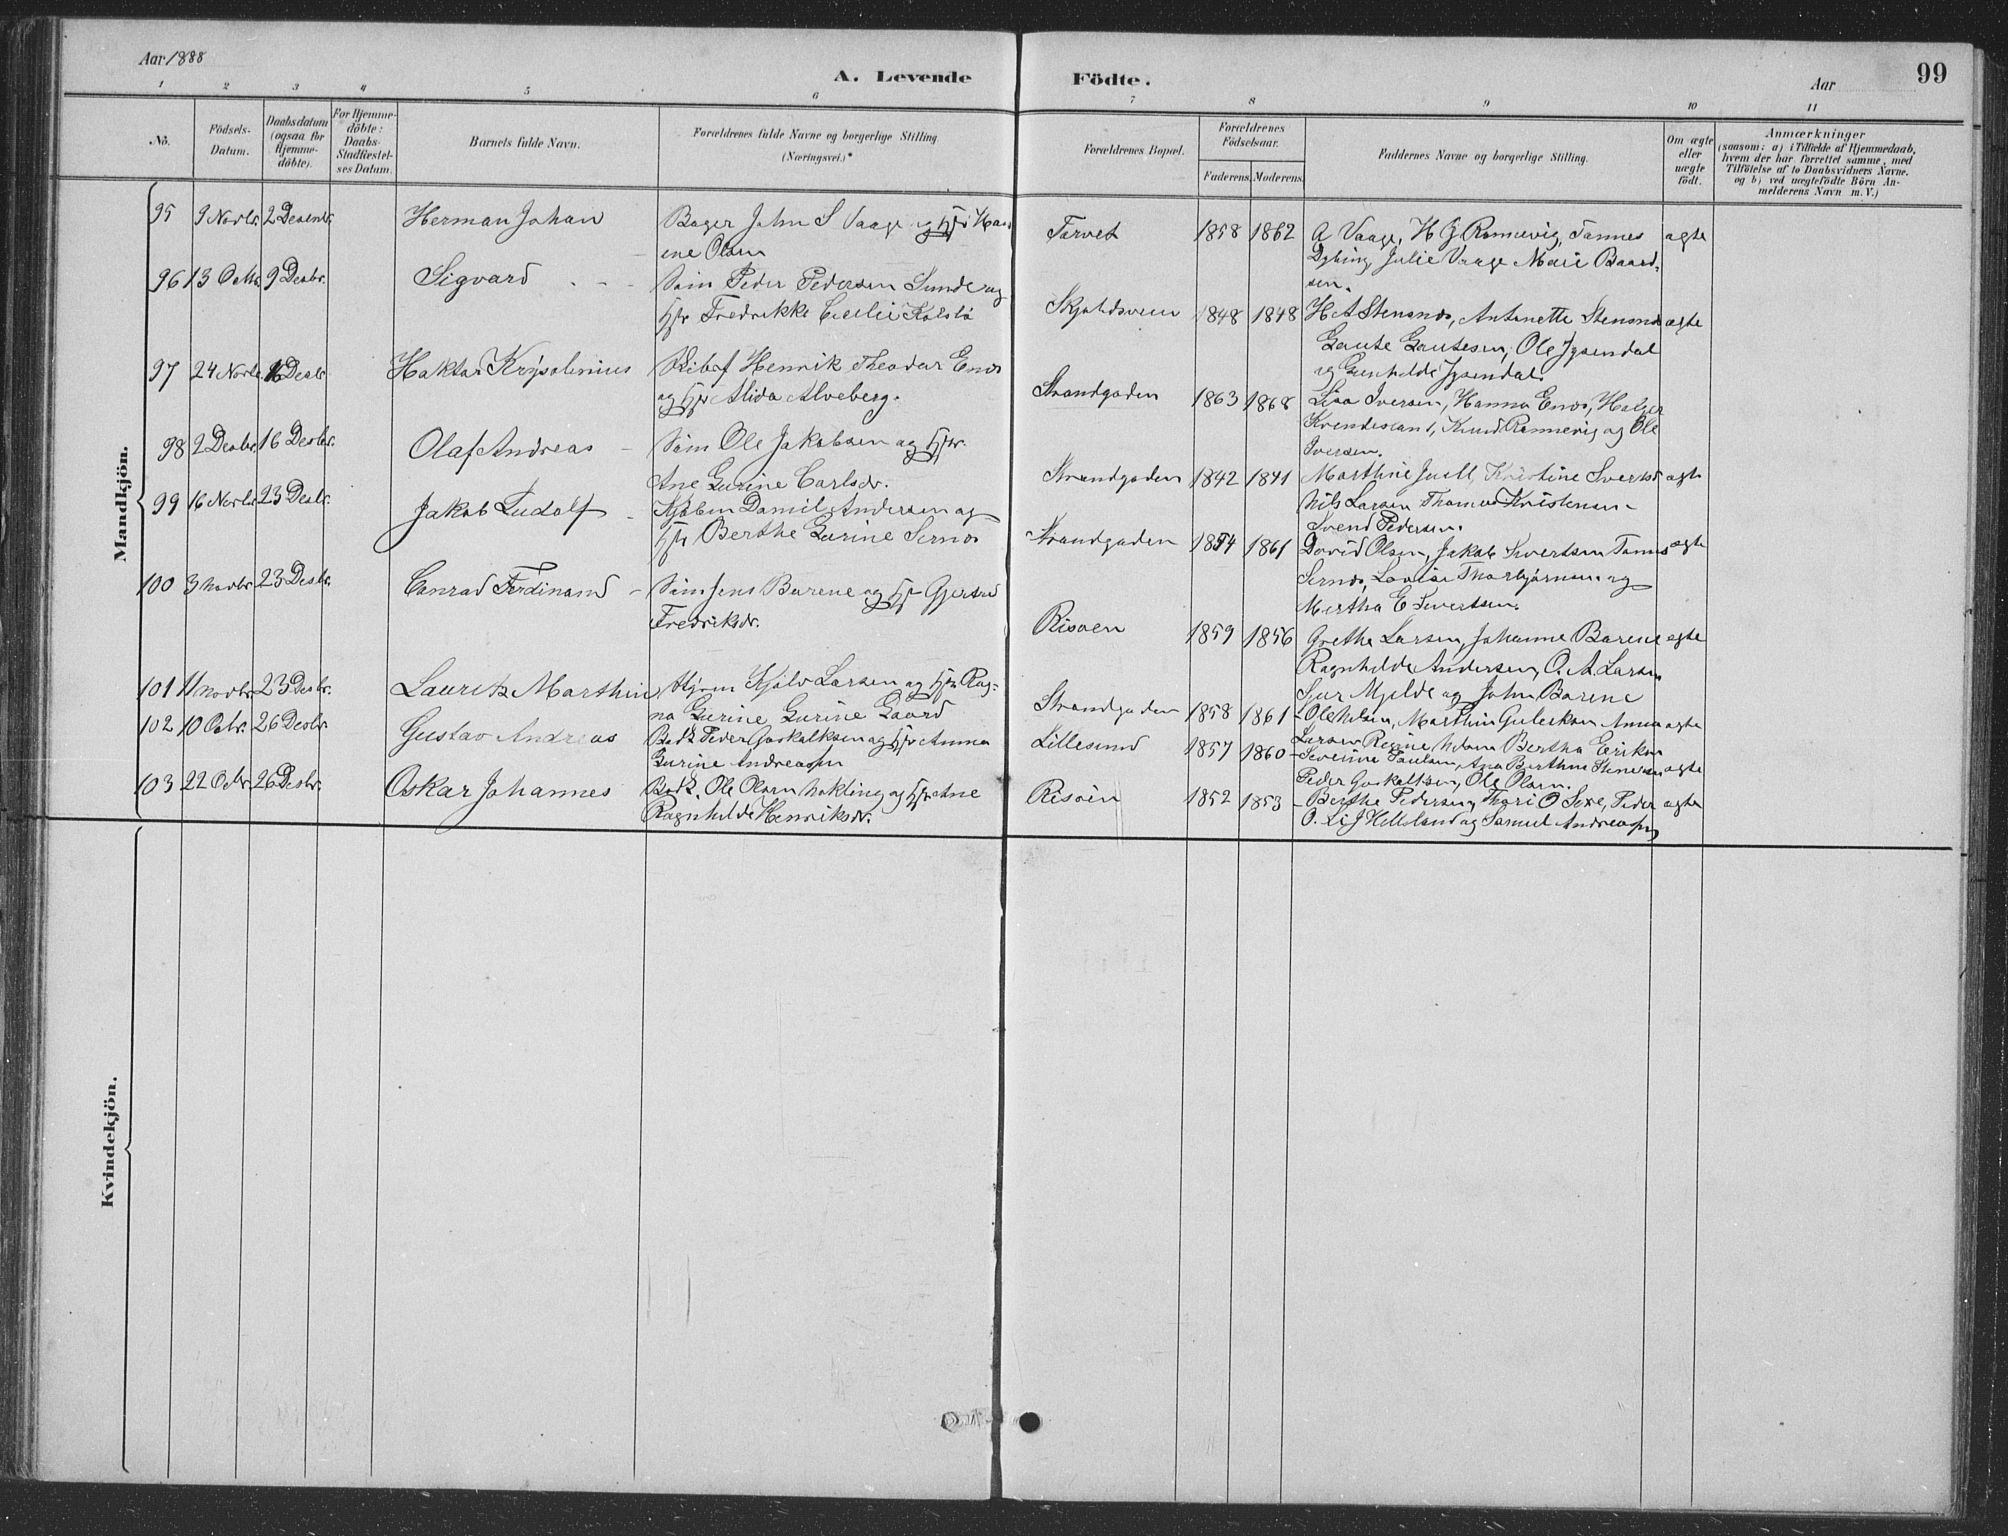 Aar 1888
A. Levende
Födte.
Aar
99
1 2 3 4 5 6 7 8 9 10 11
No.
Födsels-
Datum.
Daabsdatum
(ogsaa for
Hjemme-
döbte).
For Hjemme-
döbte:
Daabs-
Stadfæstel-
ses Datum.
Barnets fulde Navn.
Forældrenes fulde Navne og borgerlige Stilling
(Næringsvei.)*
Forældrenes Bopæl.
Forældrenes
Födselsaar.
Faderens. Moderens.
Faddernes Navne og borgerlige Stilling.
Om ægte
eller
uægte
födt.
Anmærkninger
(saasom: a) i Tilfælde af Hjemmedaab,
hvem der har forrettet samme, med
Tilföielse af to Daabsvidners Navne.
og b) ved uægtefödte Börn An-
melderens Navn m. V.)
Mandkjön.
95 9 Novbr. 2 Desembr. Herman Johan Bager John S Vaage og Han
ene Olsen
Torvet 1858 1862 A Vaage, H J Rønnevig, Tønnes
Dybing, Julie Vaage Marie Baard-
sen.
ægte
96 13 Oktbr. 9 Desbr. Sigvard Søm Peder Pedersen Sunde og
Fredrikke Cecilie
1848 1848 H A Stensnes, Antonette Stensnes
Gaute Gautesen, Ole Jysendal
og Gunhilde Jysendal
ægte
97 24 Novbr. 16 Desbr. Henrik Theodor Enes
og Alida Alveberg.
Strandgaden 1863 1868 Lisa Iversen, Hanna Enes, Holger
Knud Rønnevig og Ole
Iversen.
98 2 Desbr. 16 Desbr. Olaf Andreas Søm Ole Jakobsen og
Ane Gurine Carlsdr.
Strandgaden 1842 1841 Marthine Juell, Kristine Svensd
Nils Larsen Thomas Kristensen
Svend Pedersen.
ægte
99 16 Novbr. 23 Desbr. Jakob Ludolf Kjøbm Daniel Andersen og
Berthe Gurine
Strandgaden 1854 1861 David Olsen, Jakob Sivertsen
Lovise Thorbjørnsen og
Martha E Sivertsen.
ægte
100 3 Novbr. 23 Desbr. Conrad Ferdinand Søm Jens Barene og Gjertrud
Fredriksdr.
Risøen 1859 1856 Grethe Larsen, Johanne Barene
Ragnhilde Andersen, O. A. Larsen
Mjelde og John Barene
ægte
101 11 Novbr. 23 Desbr. Lauritz Marthin Kjølv Larsen og Rag-
na Gurine Gurine Gaard
Strandgaden 1858 1861 Ole Nilsen, Marthin Anna
Larsen Regine Bertha Eriksen
ægte
102 10 Octbr. 26 Desbr. Gustav Andreas Peder Goskalksen og Anna
Gurine Andreasen
Lillesund 1857 1860 Severine Paulsen, Ana Berthe
Peder Goskalksen, Ole Olsen.
ægte
103 22 Octbr. 26 Desbr. Oskar Johannes Ole Olsen Nokling og Ane
Ragnhilde Henriksdr.
Risøen 1852 1853 Berthe Pedersen, Thori O Sexe, Peder
O. Helleland og Samuel Andreasen
ægte
Kvindekjön.